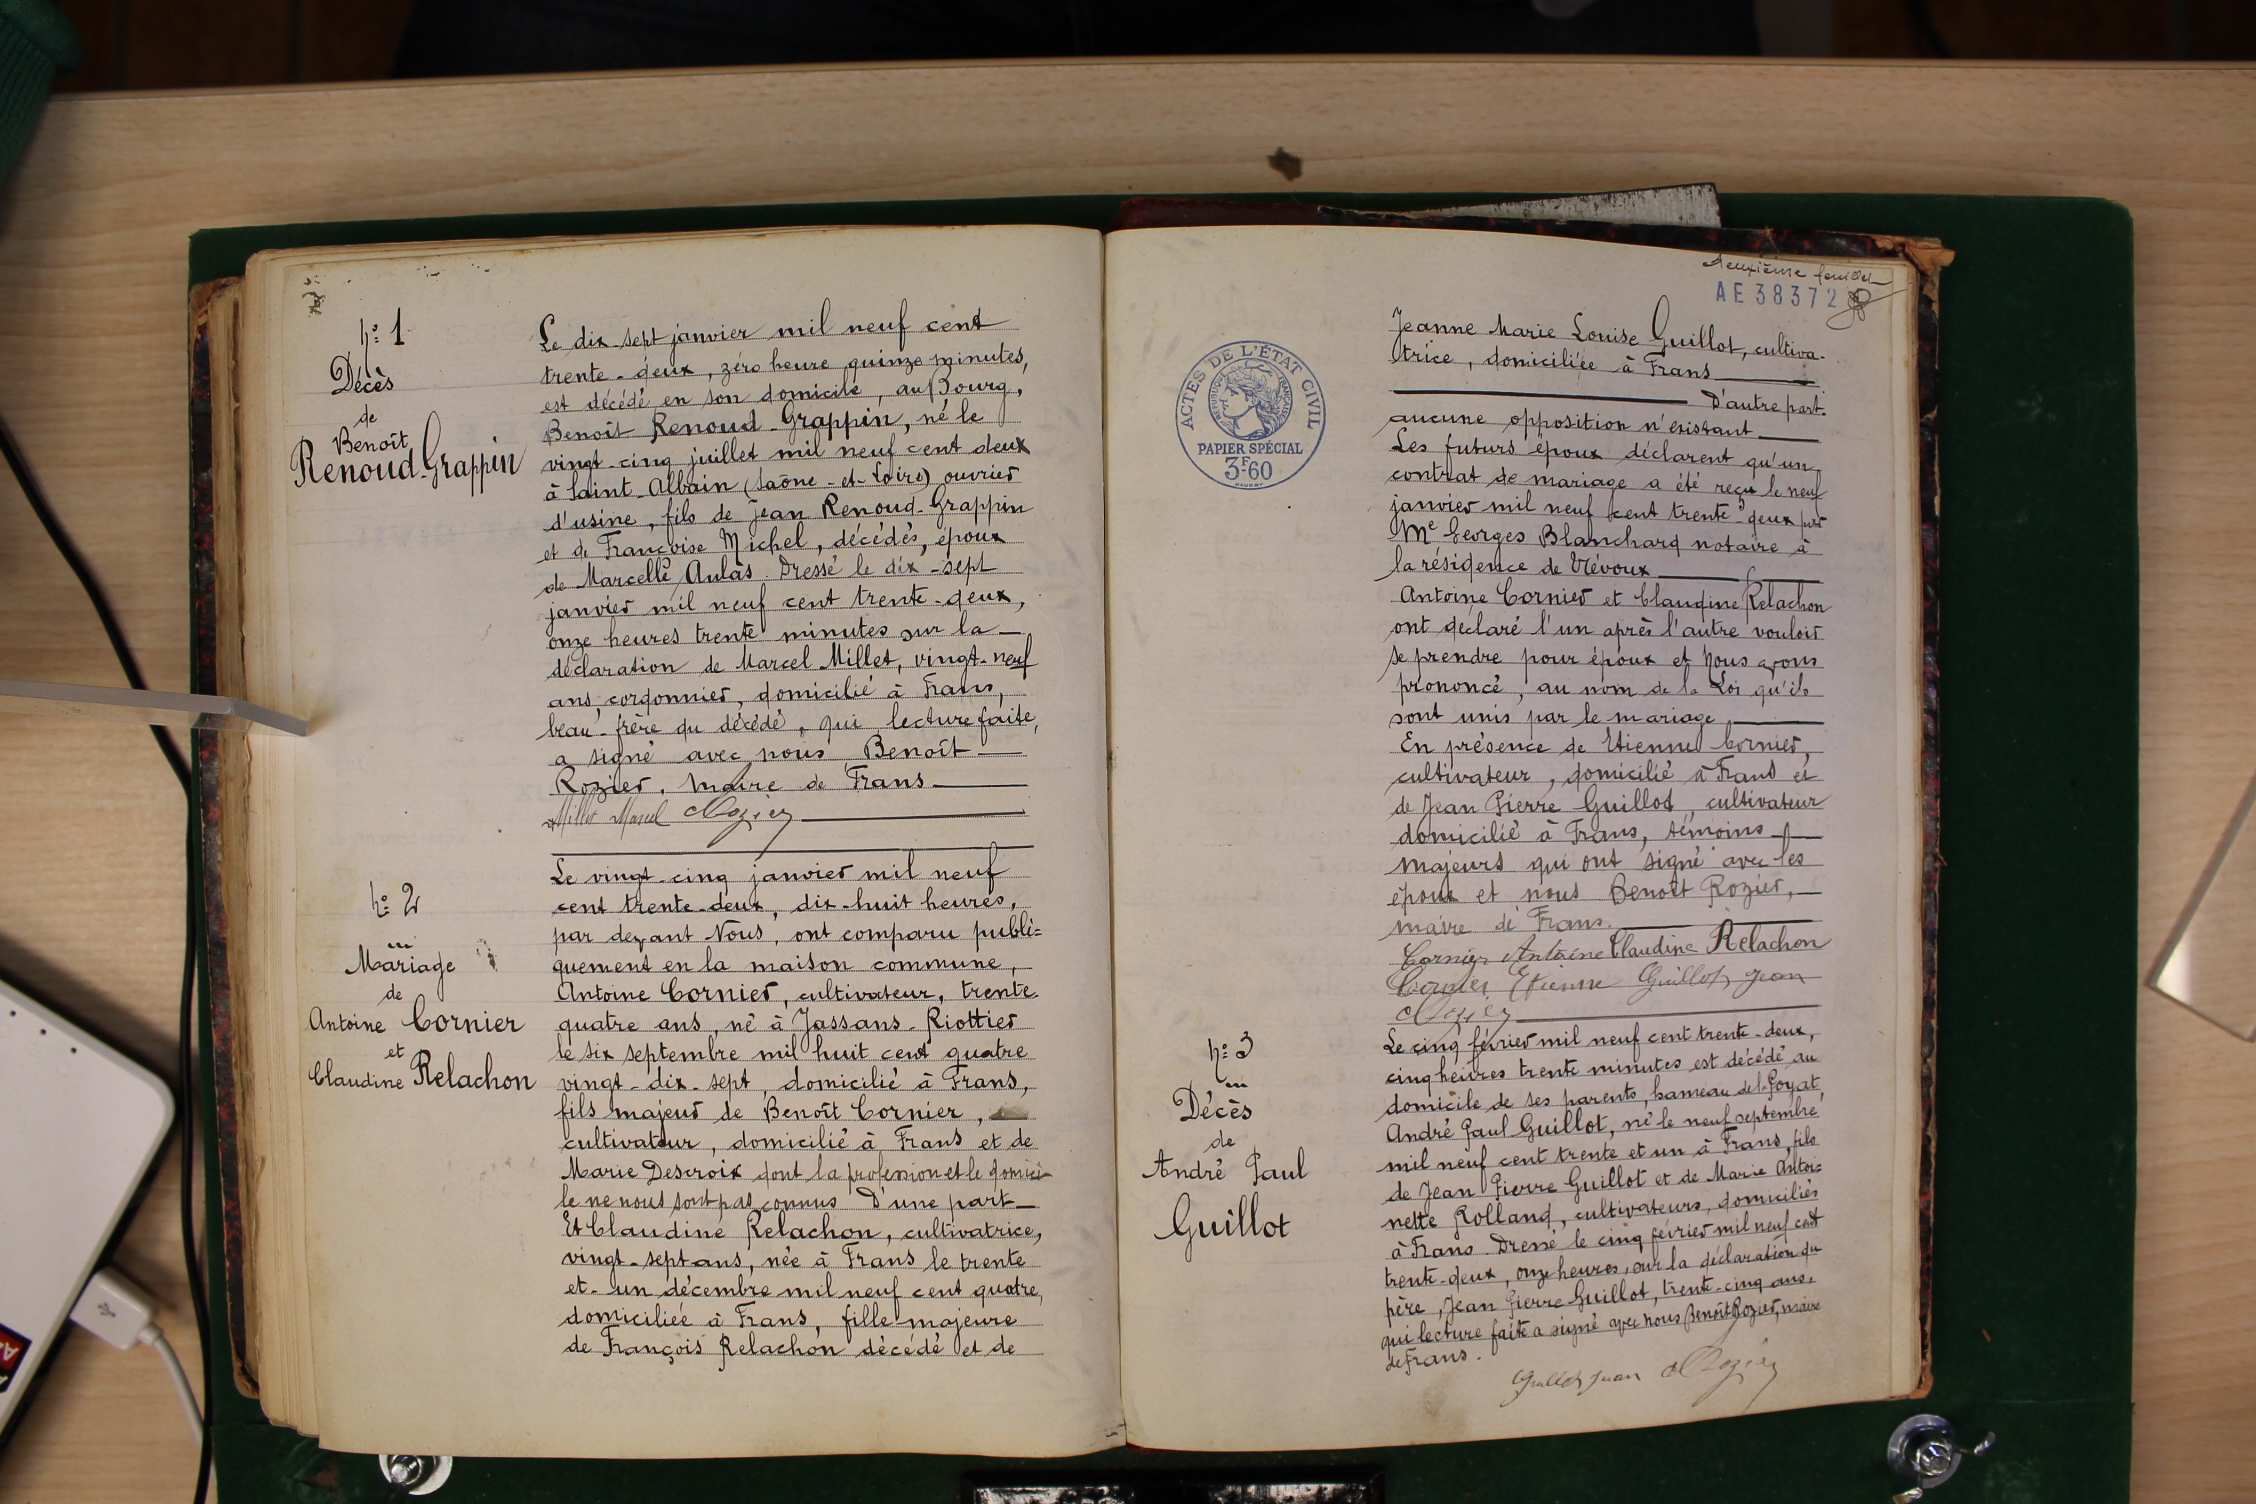 n° 1
Décès
de
Benoît
Renoud-Grappin
Le dix-sept janvier mil neuf cent
trente-deux, zéro heure quinze minutes,
est décédé en son domicile, au Bourg,
Benoît Renoud-Grappin, né le
vingt-cinq juillet mil neuf cent deux
à Saint-Albain (Saône-et-Loire) ouvrier
d'usine, fils de Jean Renoud-Grappin
et de Françoise Michel, décédés, époux
de Marcelle Aulas. Dressé le dix-sept
janvier mil neuf cent trente-deux,
onze heures trente minutes sur la
déclaration de Marcel Millet, vingt-neuf
ans, cordonnier, domicilié à Frans,
beau-frère du décédé, qui, lecture faite,
a signé avec nous Benoît
Rozier, Maire de Frans
Millet Marcel Rozier
n° 2
Mariage
de
Antoine Cornier
et
Claudine Relachon
Le vingt-cinq janvier mil neuf
cent trente-deux, dix-huit heures,
par devant Nous, ont comparu publi=
quement en la maison commune,
Antoine Cornier, cultivateur, trente-
quatre ans, né à Jassans-Riottier
le six septembre mil huit cent quatre
vingt-dix-sept, domicilié à Frans,
fils majeur de Benoît Cornier,
cultivateur, domicilié à Frans et de
Marie Descroix dont la profession et le domici-
le ne nous sont pas connus D'une part
Et Claudine Relachon, cultivatrice,
vingt-sept ans, née à Frans le trente
et-un décembre mil neuf cent quatre,
domiciliée à Frans, fille majeure
de François Relachon décédé et de
deuxième feuillet
AE 38372
ACTES DE L'ÉTAT CIVIL
RÉPUBLIQUE FRANÇAISE
PAPIER SPÉCIAL
3F60
Jeanne Marie Louise Guillot, cultiva-
trice, domiciliée à Frans
D'autre part.
aucune opposition n'existant
Les futurs époux déclarent qu'un
contrat de mariage a été reçu le neuf
janvier mil neuf cent trente-deux par
Me Georges Blanchard notaire à
la résidence de Trévoux
Antoine Cornier et Claudine Relachon
ont déclaré l'un après l'autre vouloir
se prendre pour époux et Nous avons
prononcé, au nom de la Loi qu'ils
sont unis par le mariage
En présence de Etienne Cornier,
cultivateur, domicilié à Frans et
de Jean Pierre Guillot, cultivateur
domicilié à Frans, témoins
majeurs qui ont signé avec les
époux et nous Benoît Rozier,
maire de Frans.
Cornier Antoine Claudine Relachon
Cornier Etienne Guillot Jean
Rozier
n° 3
Décès
de
André Paul
Guillot
Le cinq février mil neuf cent trente-deux,
cinq heures trente minutes est décédé au
domicile de ses parents, hameau de la Poyat,
André Paul Guillot, né le neuf septembre
mil neuf cent trente et un à Frans, fils
de Jean Pierre Guillot et de Marie Antoi=
nette Rolland, cultivateurs, domiciliés
à Frans. Dressé le cinq février mil neuf cent
trente-deux, onze heures, sur la déclaration du
père, Jean Pierre Guillot, trente-cinq ans,
qui lecture faite a signé avec nous Benoît Rozier, maire
de Frans.
Guillot Jean Rozier